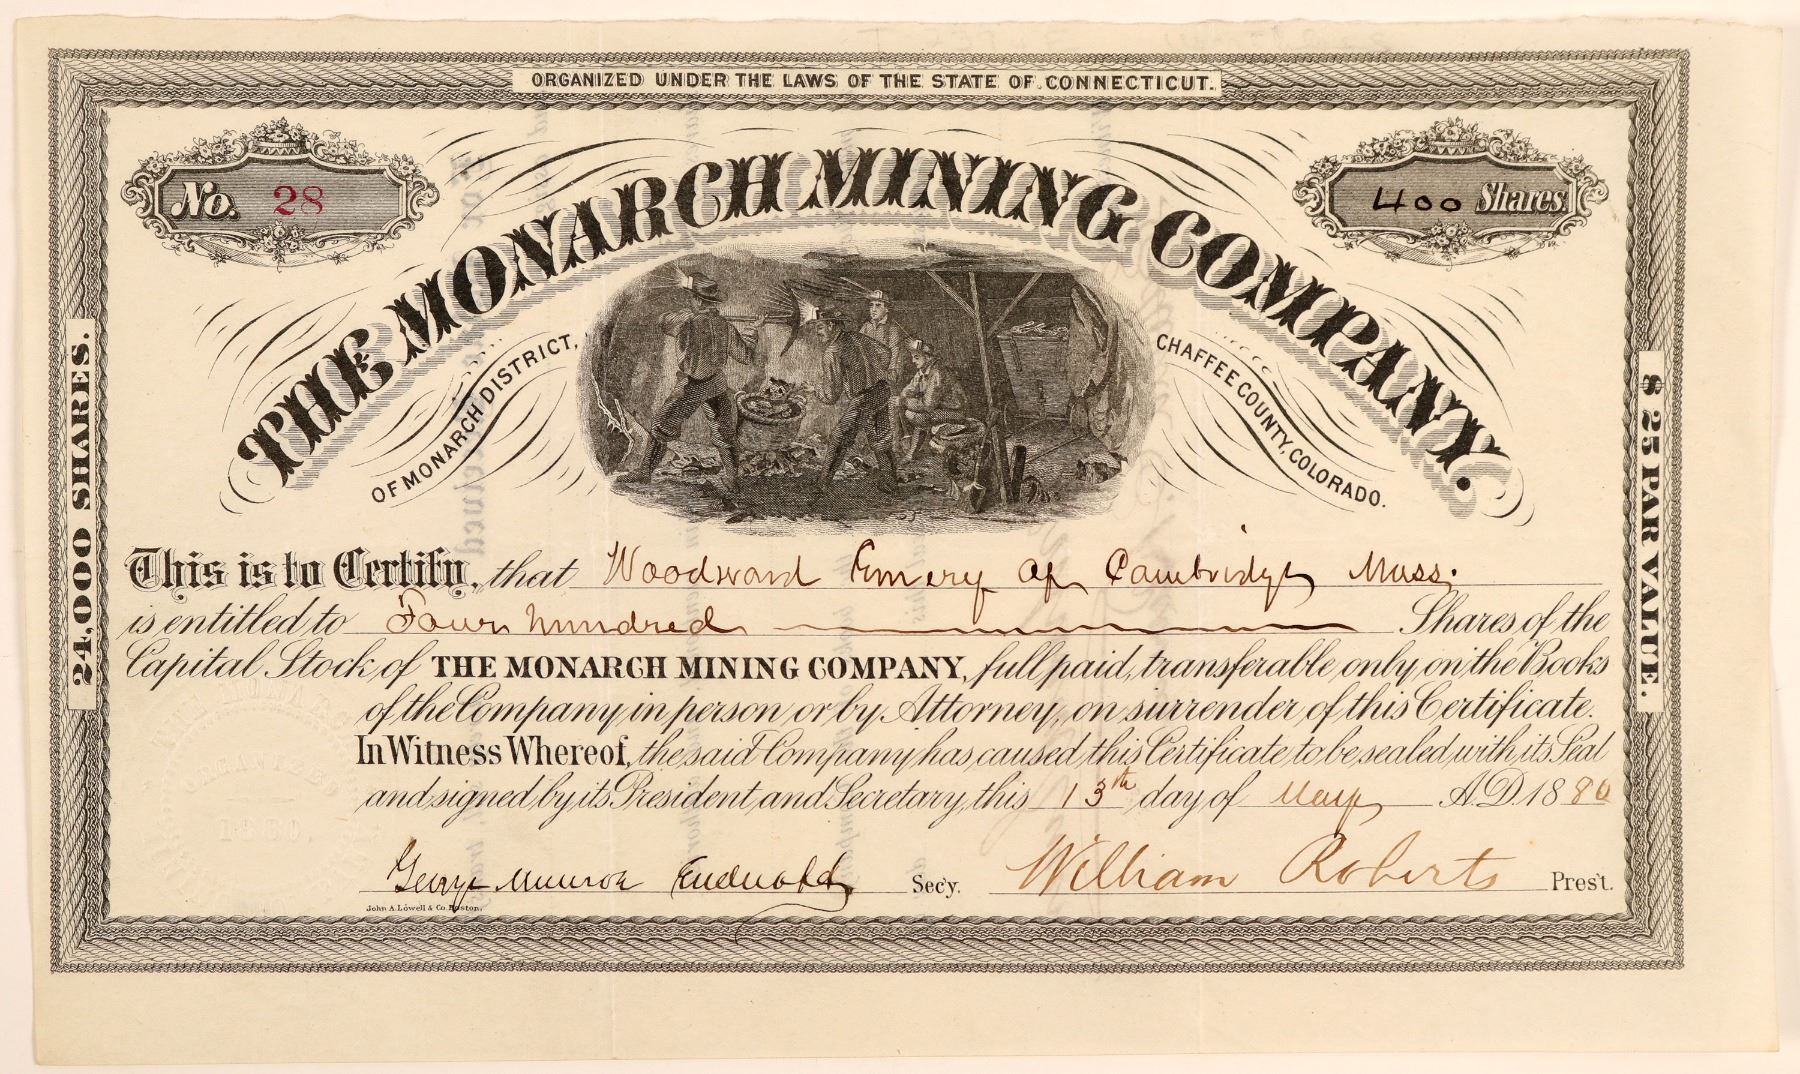 ORGANIZED UNDER THE LAWS OF THE STATE OF CONNECTICUT.
No. 28
400 Shares.
THE MONARCH MINING COMPANY.
OF MONARCH DISTRICT,
CHAFFEE COUNTY, COLORADO.
24,000 SHARES.
$25 PAR VALUE.
This is to Certify, that Woodward Emery of Cambridge Mass.
is entitled to Four hundred Shares of the
Capital Stock of THE MONARCH MINING COMPANY, full paid, transferable only on the Books
of the Company in person or by Attorney, on surrender of this Certificate.
In Witness Whereof, the said Company has caused this Certificate to be sealed with its Seal
and signed by its President and Secretary, this 13th day of May A.D. 1880
George Munroe Secy. William Roberts Prest.
John A. Lowell & Co. Boston.
ORGANIZED
1880.